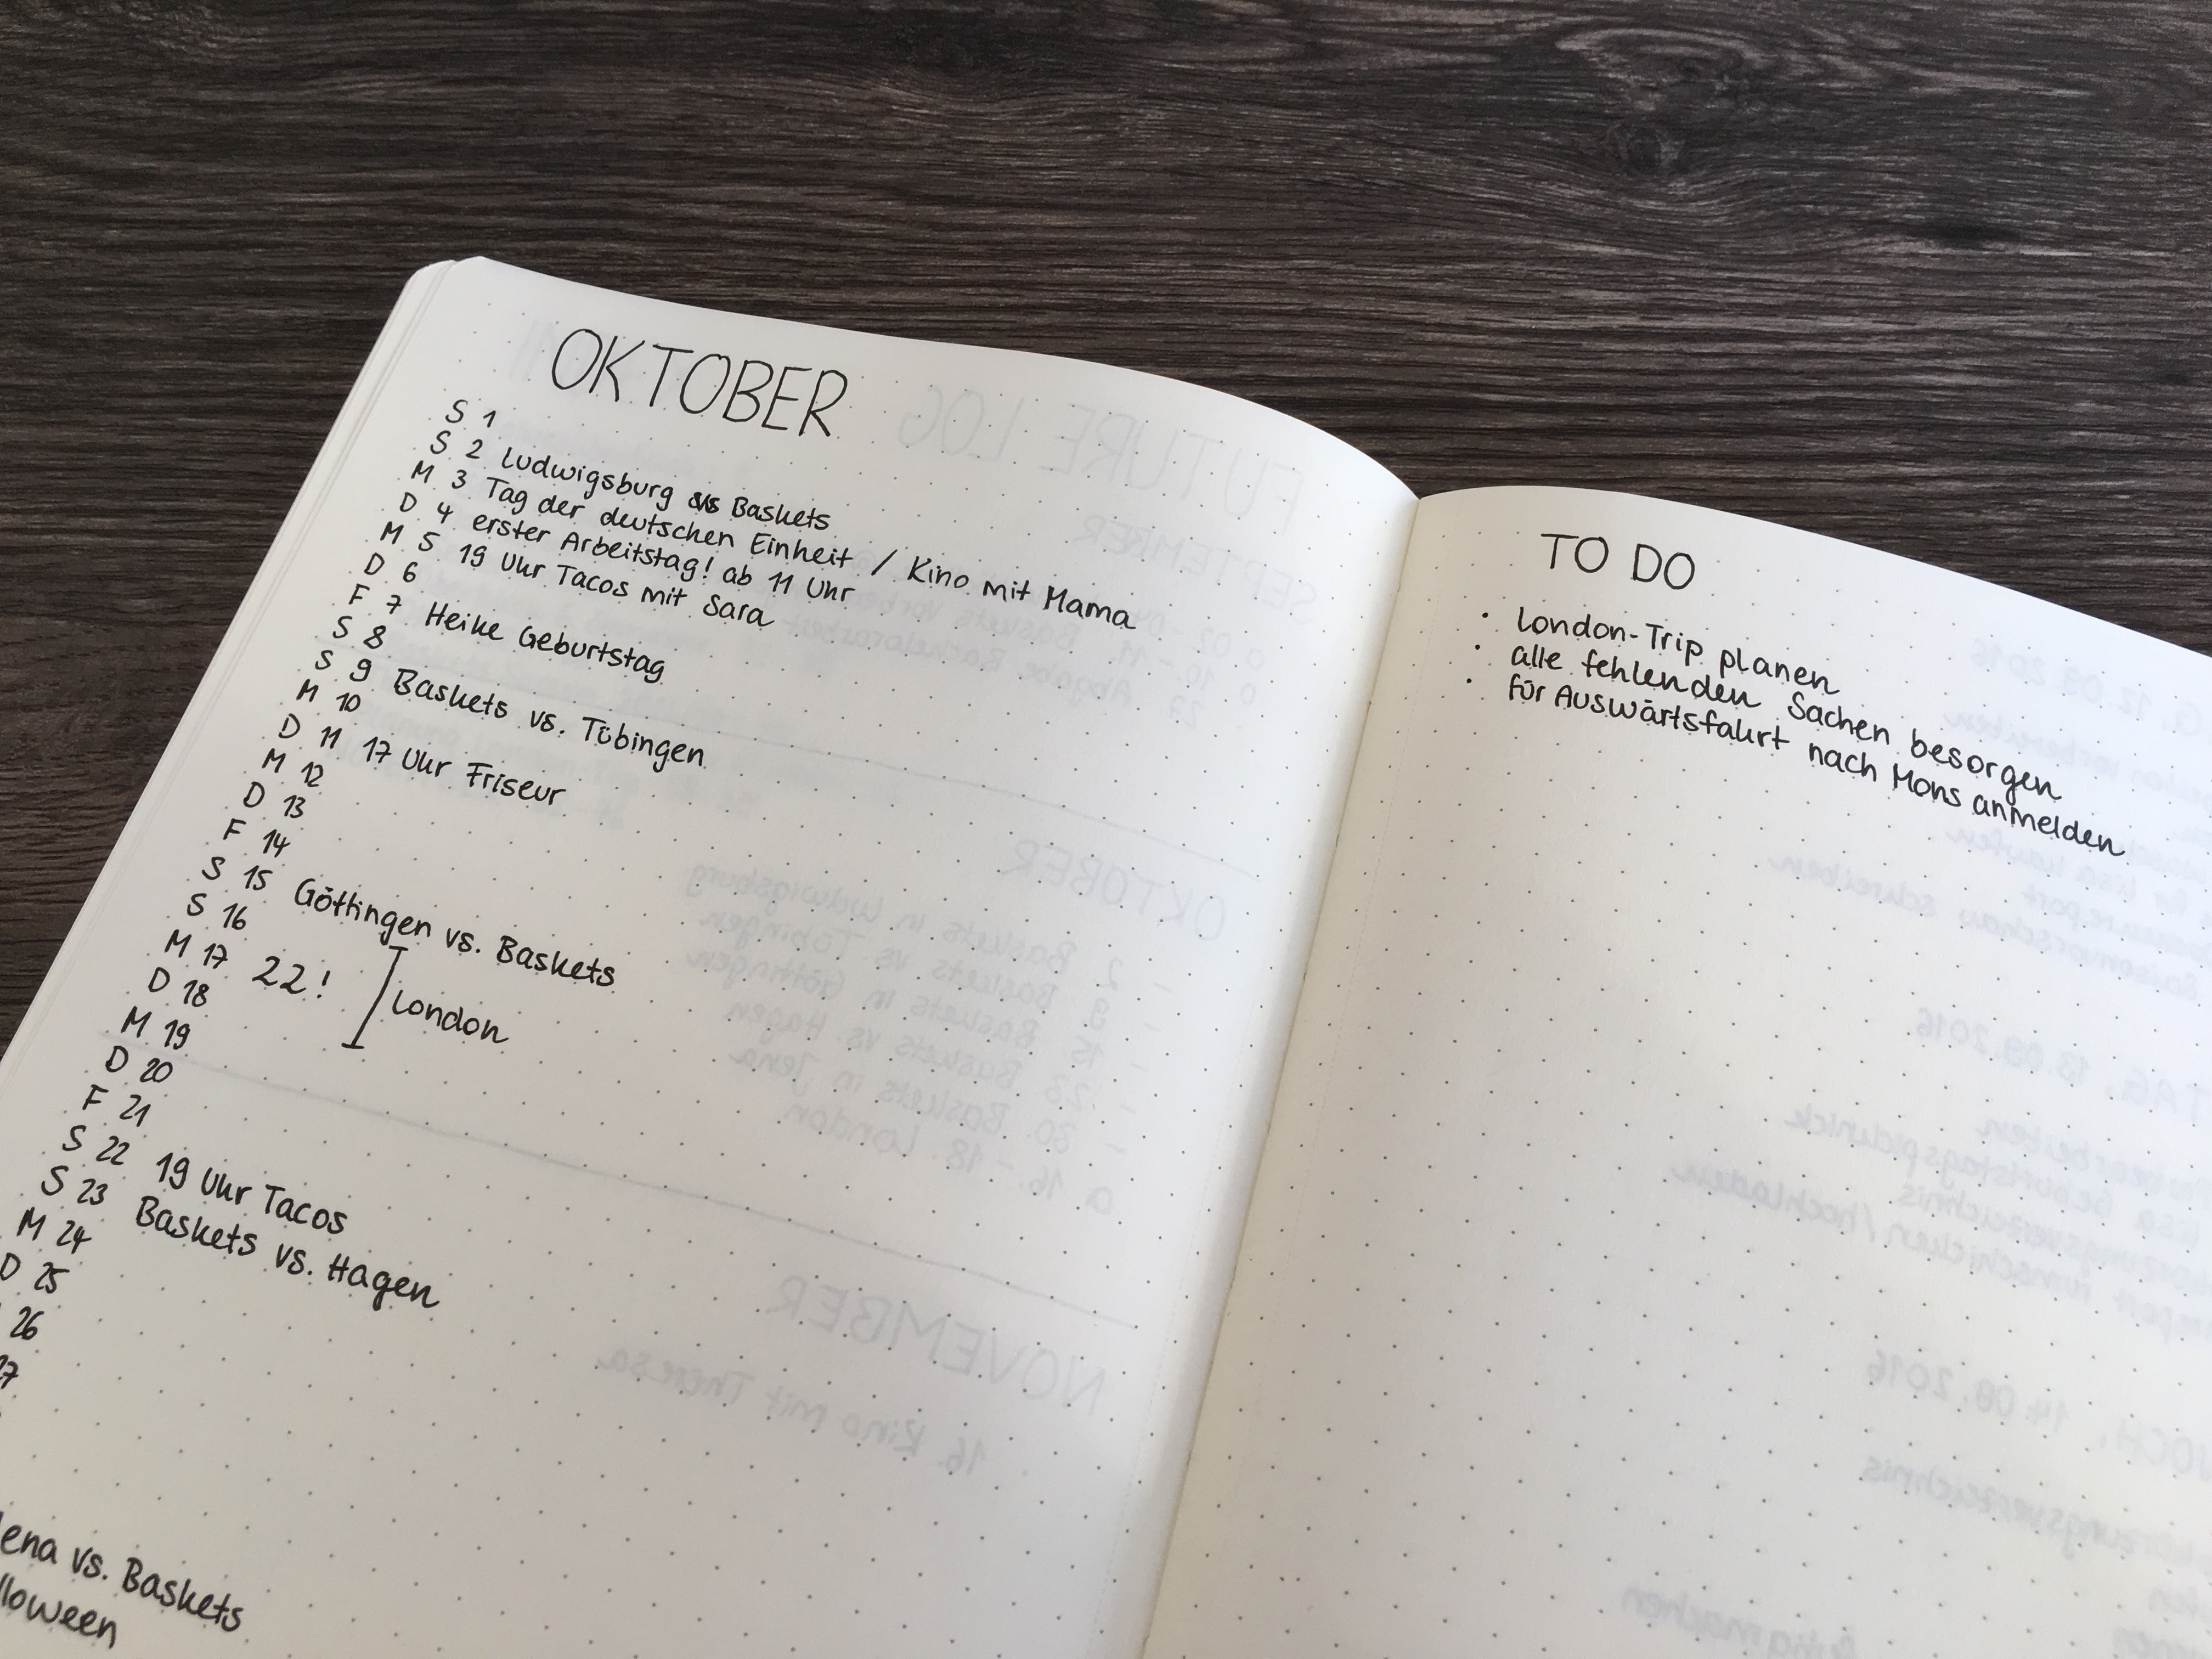 OKTOBER
S 1
S 2 Ludwigsburg vs Baskets
M 3 Tag der deutschen Einheit / Kino mit Mama
D 4 erster Arbeitstag! ab 11 Uhr
M 5 19 Uhr Tacos mit Sara
D 6
F 7 Heike Geburtstag
S 8
S 9 Baskets vs. Tübingen
M 10
D 11 17 Uhr Friseur
M 12
D 13
F 14
S 15 Göttingen vs. Baskets
S 16
M 17 22! London
D 18
M 19
D 20
F 21
S 22 19 Uhr Tacos
S 23 Baskets vs. Hagen
M 24
D 25
26
ena vs. Baskets
lloween
TO DO
· London-Trip planen
· alle fehlenden Sachen besorgen
· für Auswärtsfahrt nach Mons anmelden